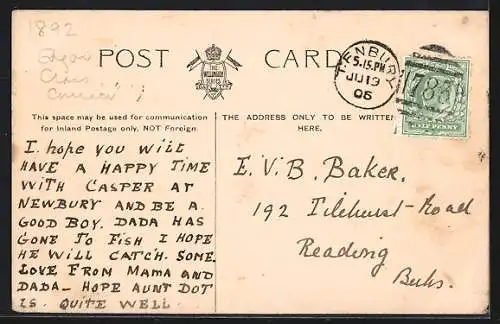 1892
POST CARD
THE WELLINGTON SERIES
TENBURY
5-15.PM
JU 19
05
785
HALFPENNY
This space may be used for communication
for Inland Postage only, NOT Foreign.
THE ADDRESS ONLY TO BE WRITTEN
HERE.
I hope you will
HAVE A HAPPY TIME
WITH CASPER AT
NEWBURY AND BE A
GOOD BOY. DADA HAS
GONE TO FISH I HOPE
HE WILL CATCH. SOME.
LOVE FROM MAMA AND
DADA - HOPE AUNT DOT
IS. QUITE WELL.
E. V. B. Baker.
192 Tilehurst-Road
Reading
Berks.